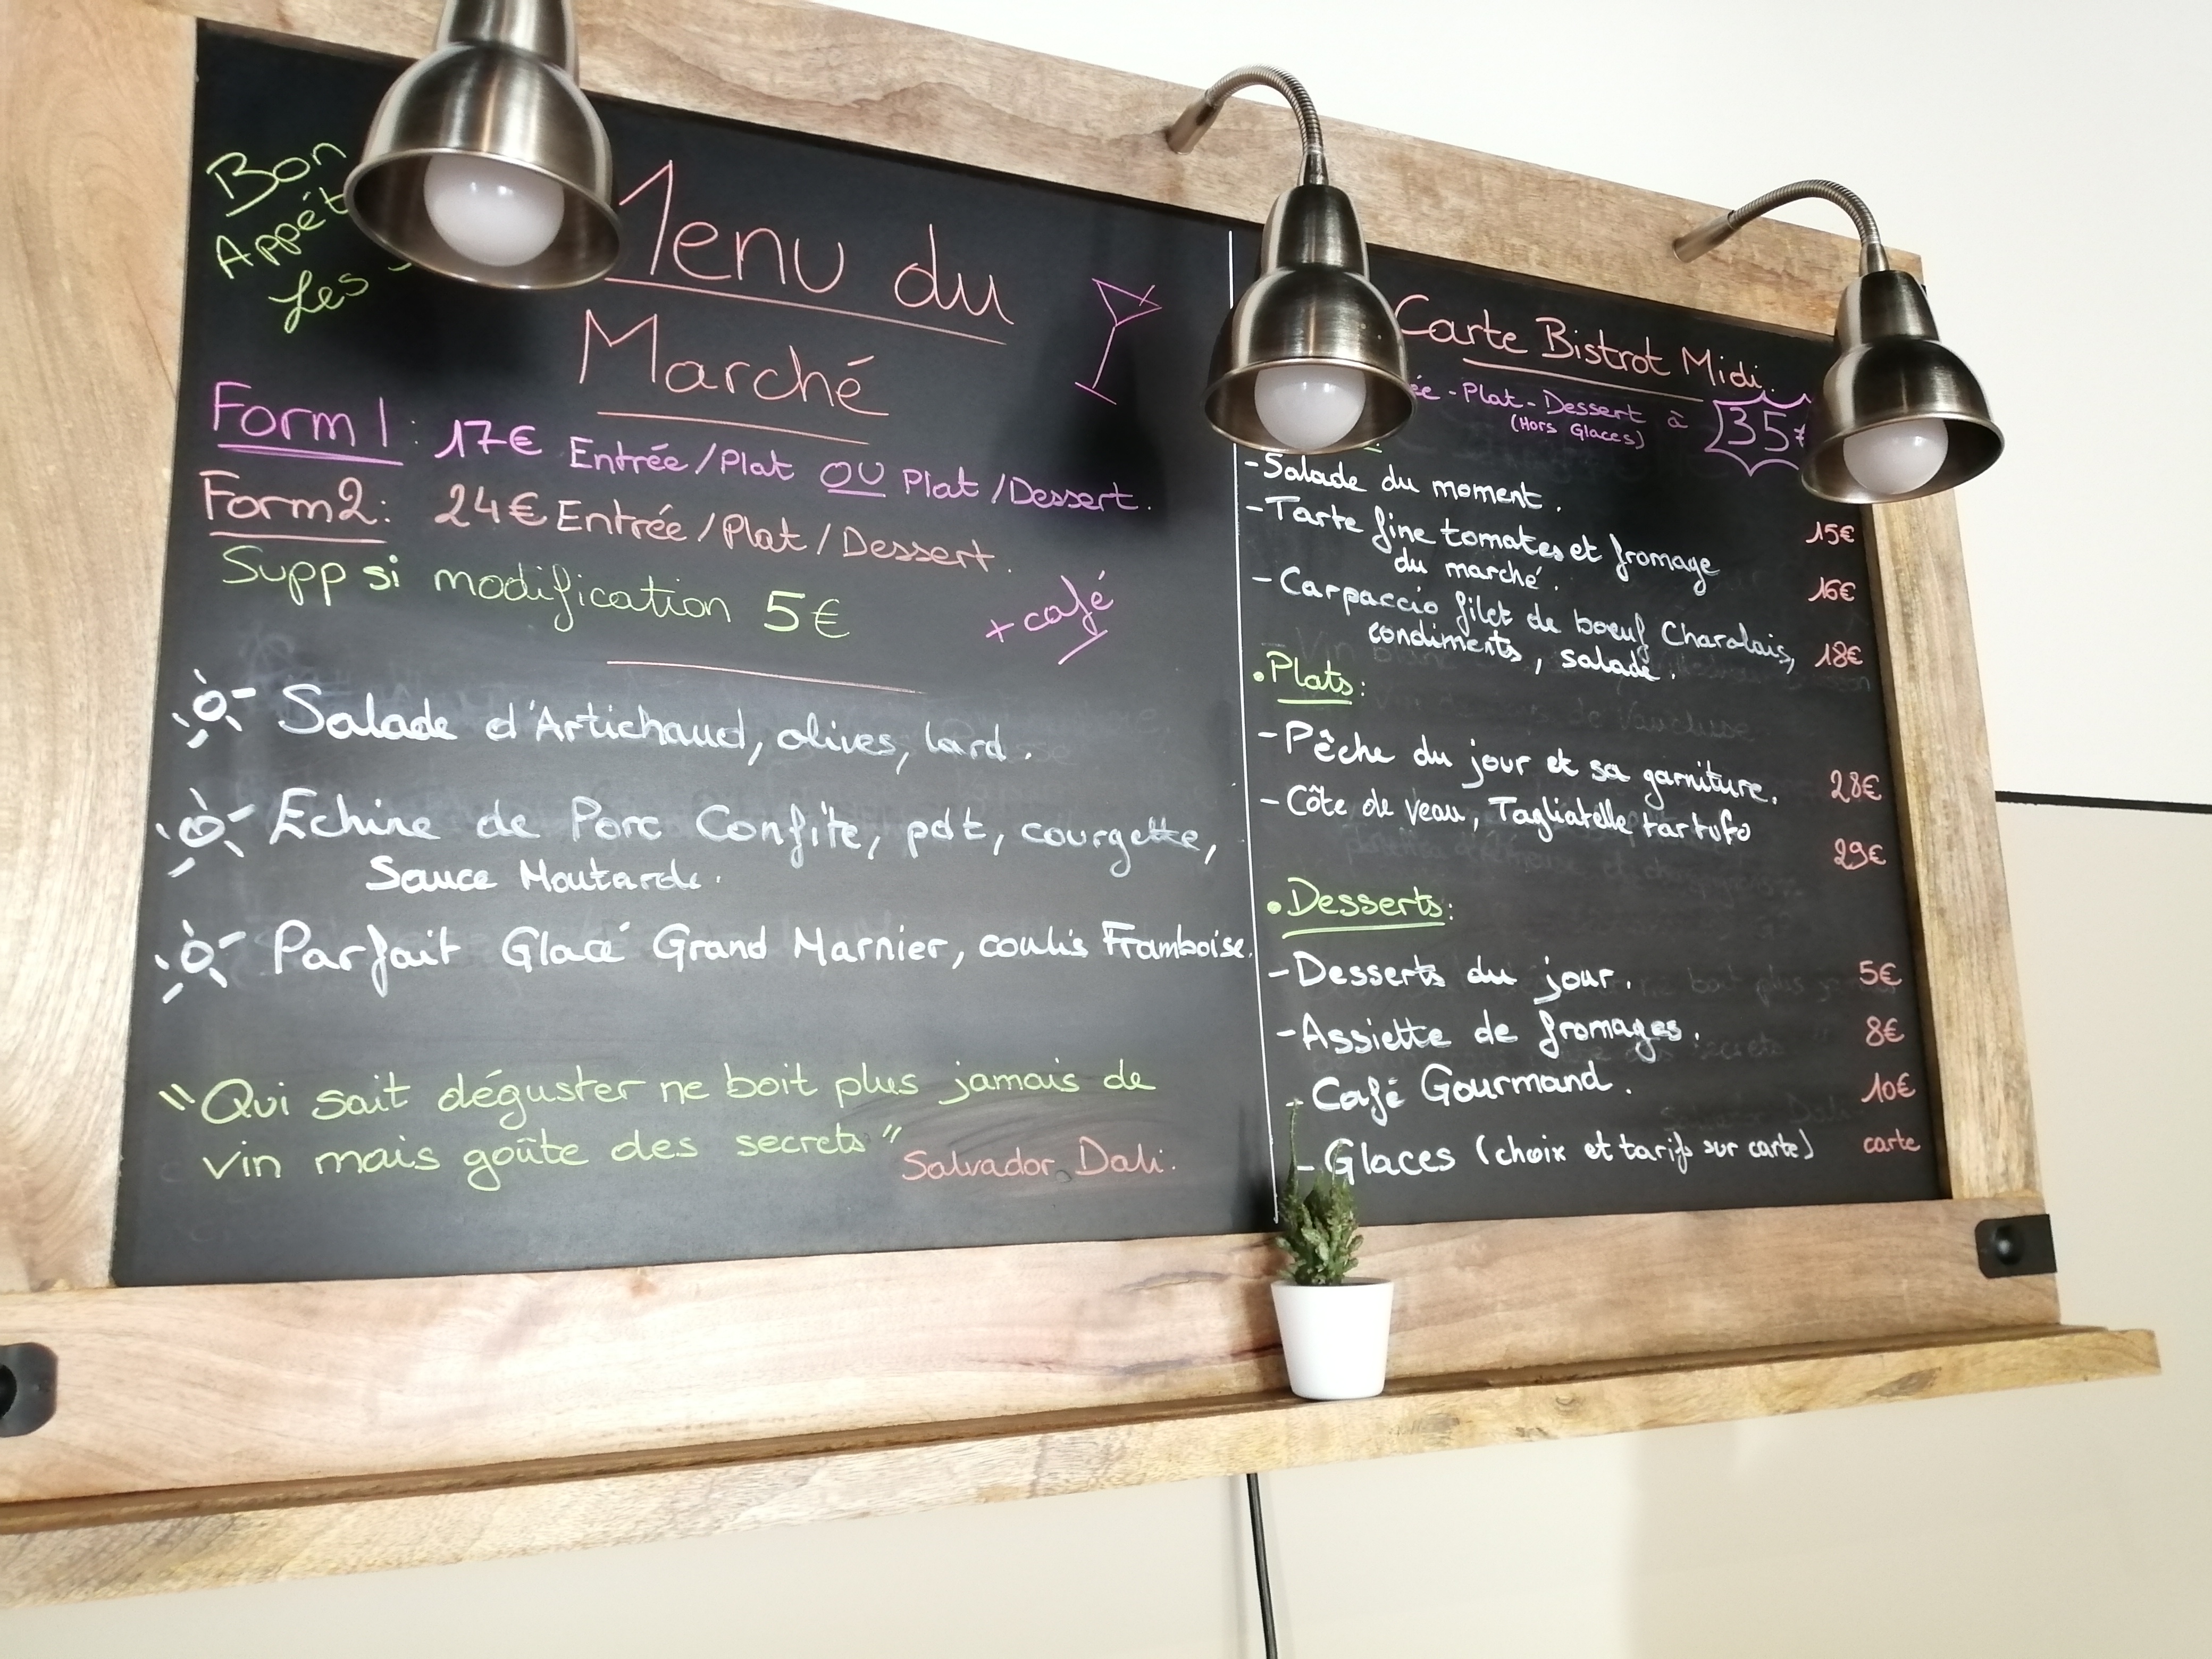 Bon
Appét
Les
Menu du
Marché
Form 1: 17€ Entrée/Plat OU Plat/Dessert.
Form 2: 24€ Entrée/Plat/Dessert.
Supp si modification 5€
+ café
Salade d'Artichaud, olives, lard.
Echine de Porc Confite, pdt, courgette,
Sauce Moutarde.
Parfait Glacé Grand Marnier, coulis Framboise.
"Qui sait déguster ne boit plus jamais de
vin mais goûte des secrets"
Salvador Dali.
Carte Bistrot Midi.
ée - Plat - Dessert à 35€
(Hors Glaces)
- Salade du moment. 15€
- Tarte fine tomates et fromage
du marché. 16€
- Carpaccio filet de boeuf Charolais,
condiments, salade. 18€
• Plats:
- Pêche du jour et sa garniture. 28€
- Côte de veau, Tagliatelle tartufo
29€
• Desserts:
- Desserts du jour. 5€
- Assiette de fromages. 8€
- Café Gourmand. 10€
- Glaces (choix et tarifs sur carte) carte